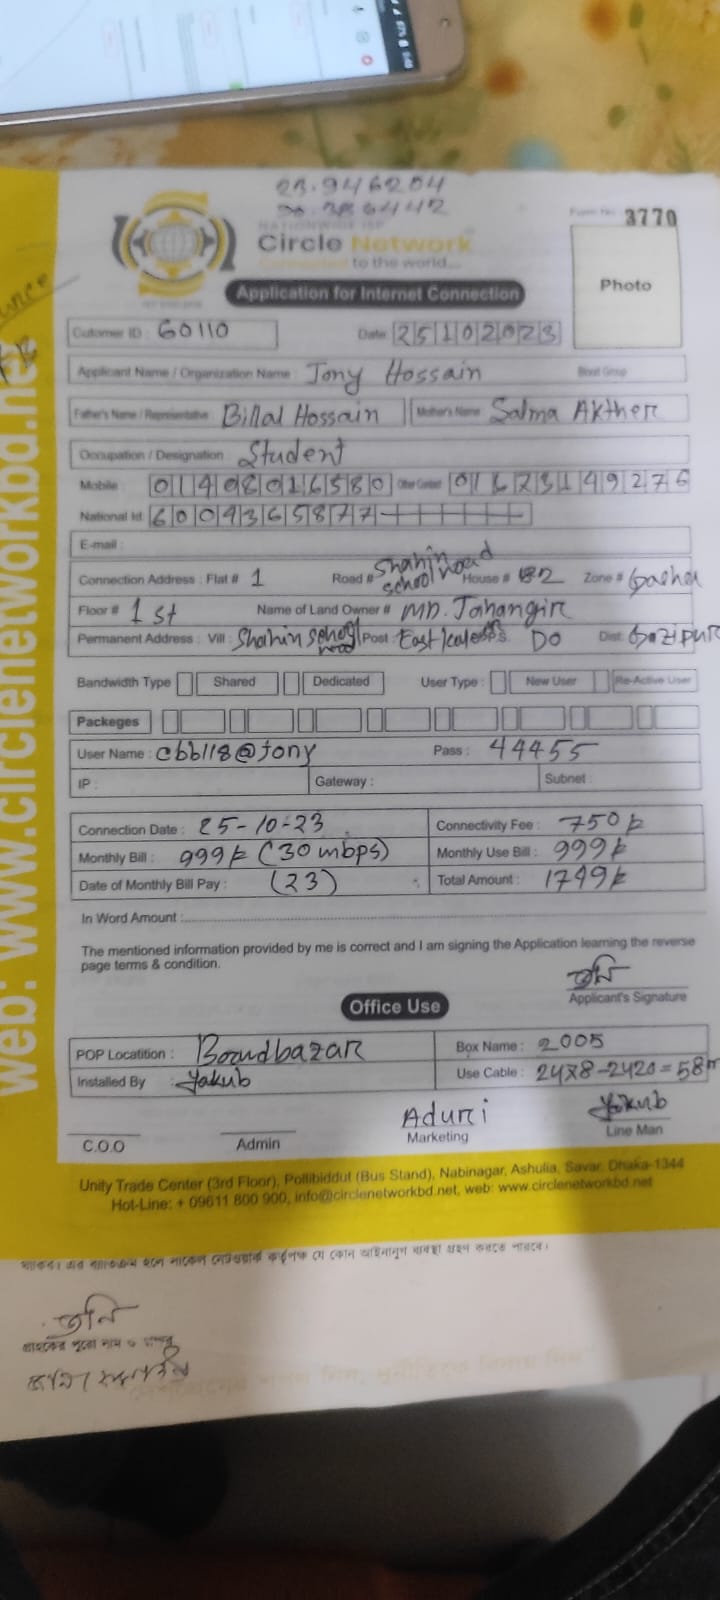 23.946204
90.386442
NATIONWIDE ISP
Form No. 3770
Circle Network
Connected to the world...
Application for Internet Connection
Photo
Cutomer ID : 60110 Date 25102023
Applicant Name / Organization Name : Tony Hossain Blood Group
Father's Name / Representative Billal Hossain Mother's Name Salma Akther
Occupation / Designation Student
Mobile 01408016580 Other Contact 01623149276
National Id 6009365877
E-mail :
Connection Address : Flat # 1 Road # Shahin school road House # 82 Zone #
Floor # 1st Name of Land Owner # MD. Jahangir
Permanent Address : Vill : Shahin school road Post East P.S. DO Dist: Gazipur
Bandwidth Type Shared Dedicated User Type : New User Re-Active User
Packeges
User Name : cbb118@tony Pass : 44455
IP : Gateway : Subnet :
Connection Date : 25-10-23 Connectivity Fee : 750৳
Monthly Bill : 999৳ (30 mbps) Monthly Use Bill : 999৳
Date of Monthly Bill Pay : (23) Total Amount : 1749৳
In Word Amount :
The mentioned information provided by me is correct and I am signing the Application learning the reverse
page terms & condition.
তনি
Applicant's Signature
Office Use
POP Locatition : Boardbazar Box Name : 2005
Installed By : Yakub Use Cable : 2478-2420=58m
C.O.O Admin Aduri Marketing Yakub Line Man
Unity Trade Center (3rd Floor), Pollibiddut (Bus Stand), Nabinagar, Ashulia, Savar, Dhaka-1344
Hot-Line: + 09611 800 900, info@circlenetworkbd.net, web: www.circlenetworkbd.net
web: www.circlenetworkbd.net
থাকিব। এর ব্যতিক্রম হলে সার্কেল নেটওয়ার্ক কর্তৃপক্ষ যে কোন আইনানুগ ব্যবস্থা গ্রহণ করতে পারবে।
তনি
গ্রাহকের পুরো নাম ও স্বাক্ষর